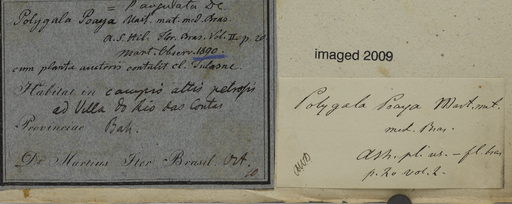 = P. angulata DC
Polygala Poaya Mart. mat. med. Bras.
A. S. Hil. flor. Bras. Vol. II p. 20.
Mart. Observ. 1890.
cum planta auctoris contulit cl. Tulasne.
Habitat in campis altis petrosis
ad Villa do Rio das Contas
Provinciae Bah.
De Martius Iter Brasil.
imaged 2009
Polygala Poaya Mart. mat.
med. Bras.
ASH. pl. us. - fl. bras
p. 20 vol. 2.